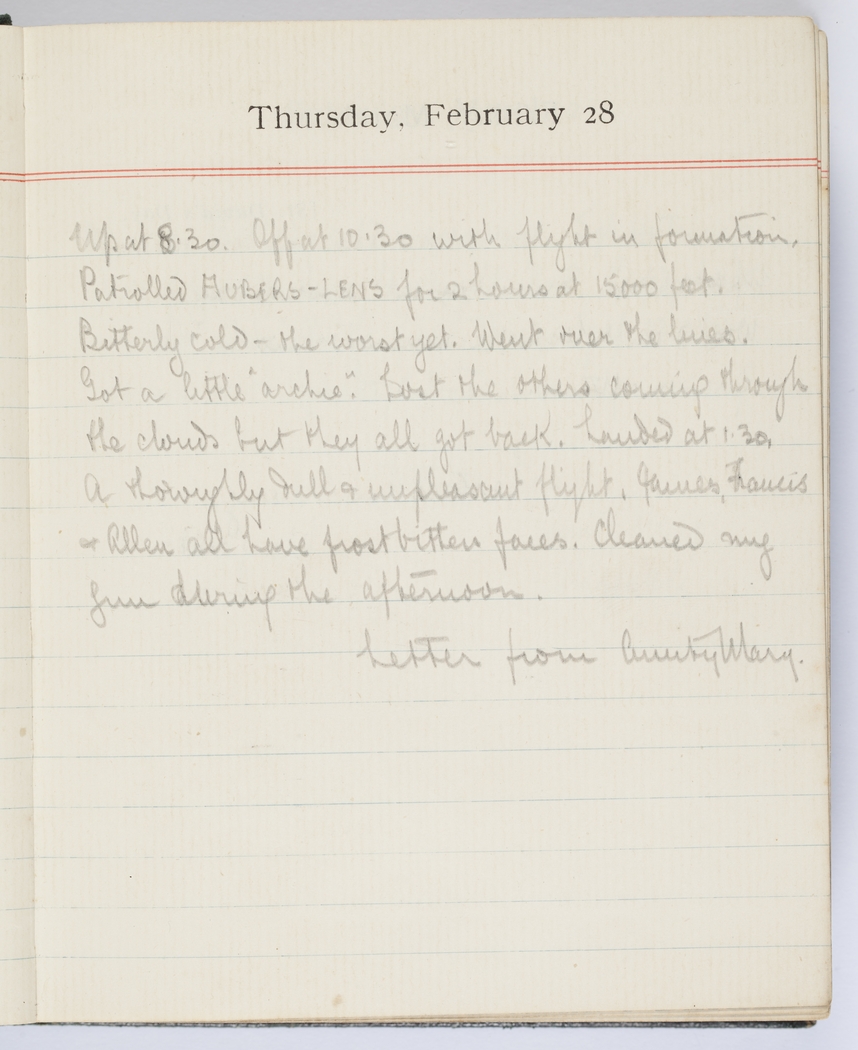 Thursday, February 28
Up at 8.30. Off at 10.30 with flight in formation.
Patrolled AUBERS-LENS for 2 hours at 15000 feet.
Bitterly cold - the worst yet. Went over the lines.
Got a little "archie". Lost the others coming through
the clouds but they all got back. Landed at 1.30.
A thoroughly dull & unpleasant flight. James, Francis
& Allen all have frostbitten faces. Cleaned my
gun during the afternoon.
Letter from Aunty Mary.